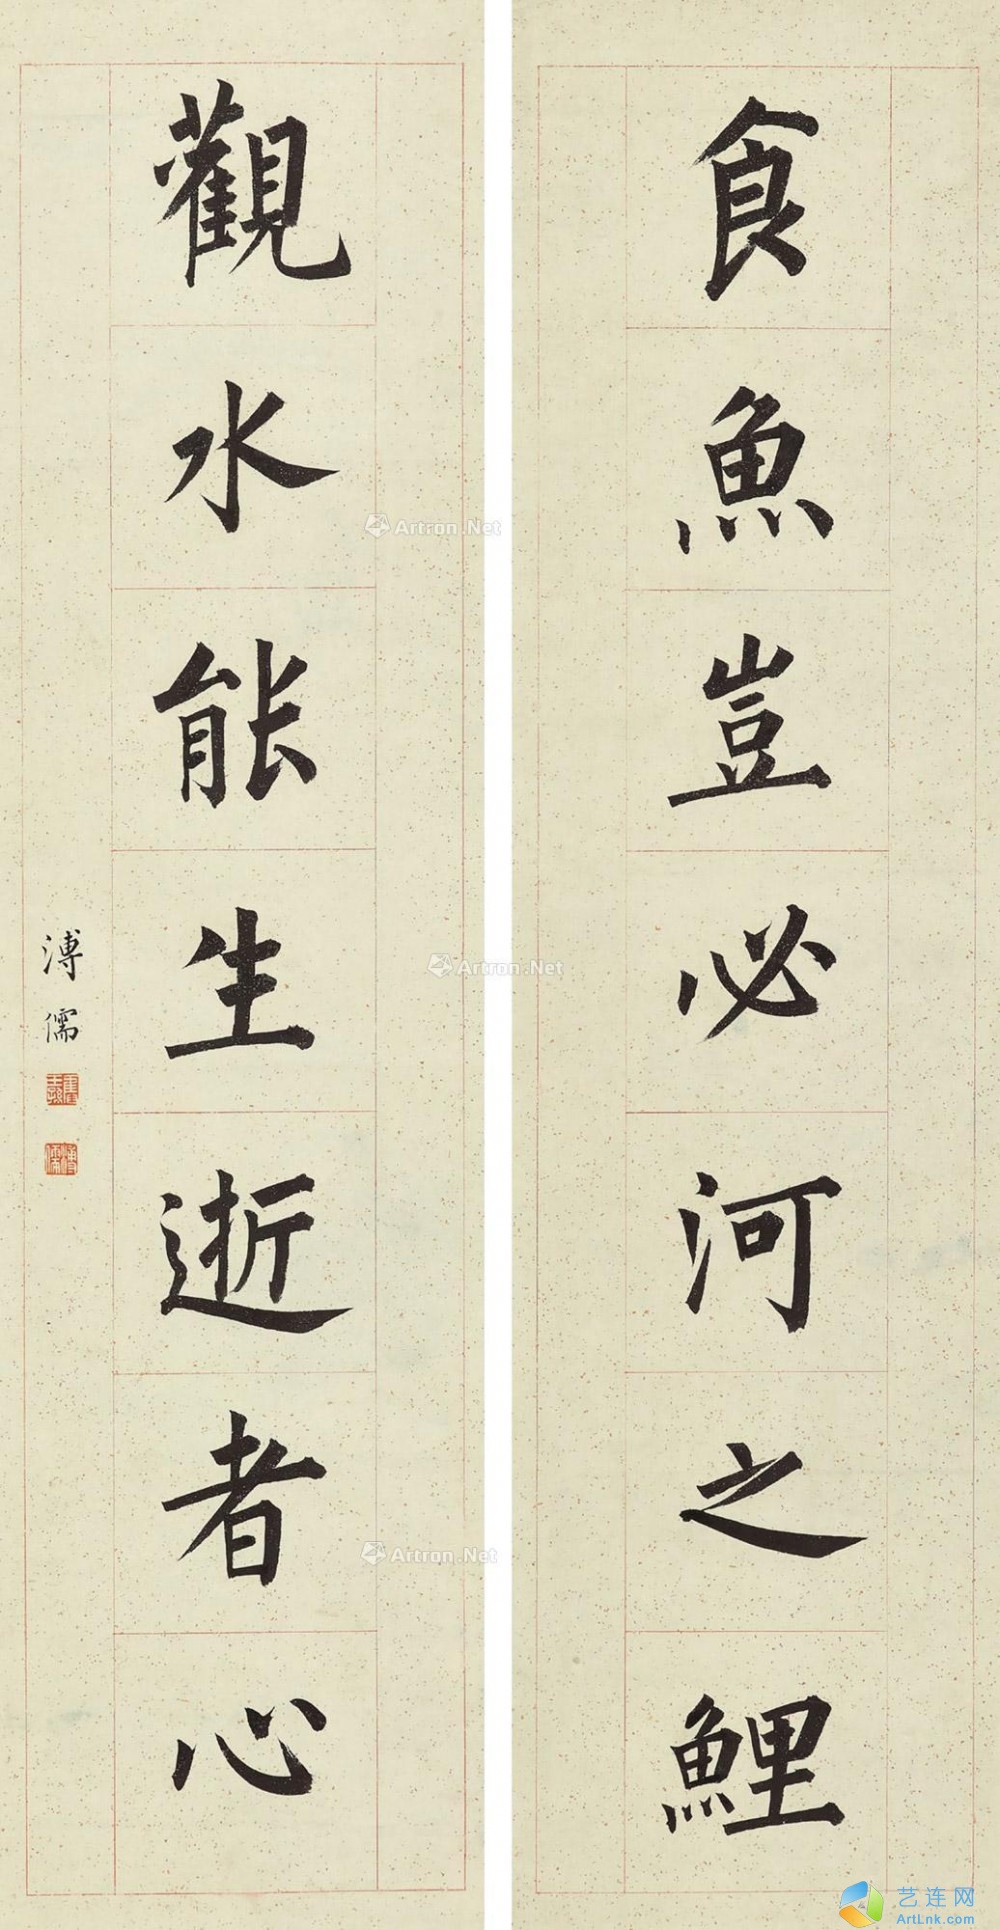 食魚豈必河之鯉
觀水能生逝者心
溥儒
舊王孫
溥儒
Artron.Net
Artron.Net
Artron.Net
艺连网
ArtLnk.com